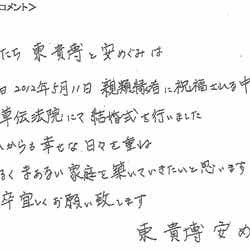 コメント>
たち 東 貴博 と 安めぐみ は
日 2012年5月11日 親類縁者に祝福される中
草伝法院にて 結婚式を行いました
からも 幸せな 日々を重ね
るく まあるい 家庭を築いていきたいと思います
卒 宜しくお願い致します
東 貴博 安め